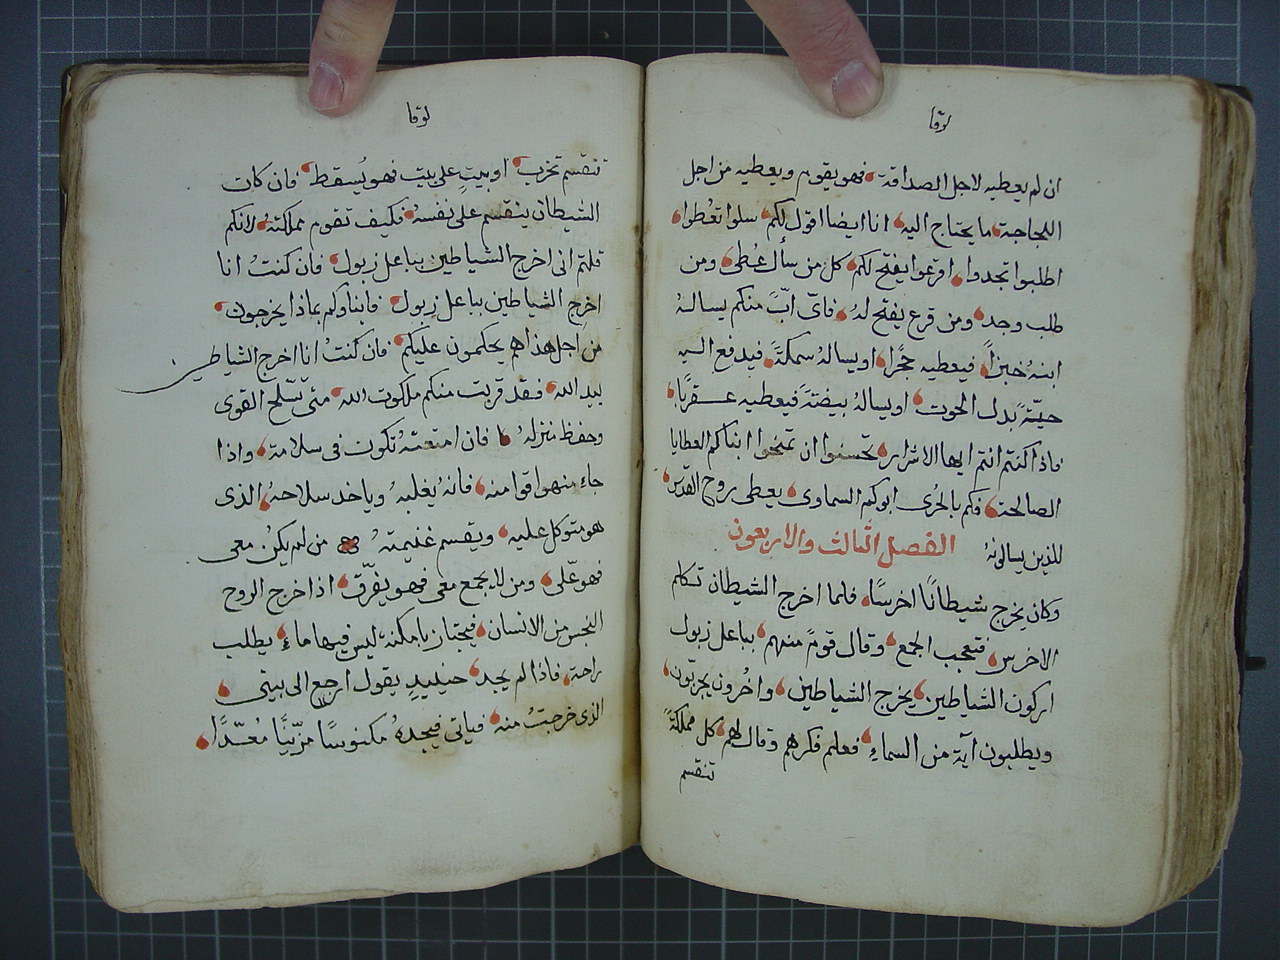 لوقا
ان لم يعطيه لاجل الصداقة فهو يقوم ويعطيه من اجل
اللجاجة ما يحتاج اليه انا ايضا اقول لكم سلوا تعُطوا
اطلبوا تجدوا اقرعوا يفتح لكم كل من سأل عُطى ومن
طلب وجد ومن قرع يفتح لهُ فاىّ ابٍّ منكم يسالهُ
ابنهُ خبزاً فيعطيه حجًرا او يسالهُ سمكتةً فيدفع اليه
حيّةً بدل الحوت او يسالهُ بيضةً فيعطيه عقربًا
فاذا كنتم انتم ايها الاشرار تحسنوا ان تمنحوا ابناكم العطايا
الصالحة فكم بالحُرى ابوكم السماوى يعطى روح القدس
للذين يسالونهُ الفصل الثالث والاربعون
وكان يخرج شيطانًا اخرسًا فلما اخرج الشيطان تكلم
الاخرس فتعجب الجمع وقال قومً منهم بباعل زبول
اركون الشياطين يخرج الشياطين واخُرون يجربّون
ويطلبون آية من السماءِ فعلم فكرهم وقال لهم كل مملكةً
تنقسم
لوقا
تنقسم تخرب او بيتٍ على بيت فهو يُسقط فان كان
الشيطان ينقسم على نفسهُ فكيف تقوم مملكتهُ لانكم
قلتم انى اخرج الشياطين بباعل زبول فان كنتُ انا
اخرج الشياطين بباعل زبول فابناوكم بماذا يخرجون
من اجل هذا هم يحكمون عليكم فان كنتُ انا اخرج الشياطين
بيد الله فقد قربت منكم ملكوت الله متى تسّلح القوى
وحفظ منزلهُ فان امتعتهُ تكون فى سلامة واذا
جاء من هو اقوا منه فانهُ يغلبهُ وياخد سلاحهُ الذى
هو متوكل عليه ويقسم غنيمتهُ من لم يكن معى
فهو علّى ومن لا يجمع معى فهو يفرّق اذا خرج الروح
النجس من الانسان فيجتاز بامكنة ليس فيها ماء يطلب
راحة فاذا لم يجد حينيدٍ يقول ارجع الى بيتى
الذى خرجتُ منه فياتى فيجدهُ مكنوسًا مزّينًا مُعدًّا